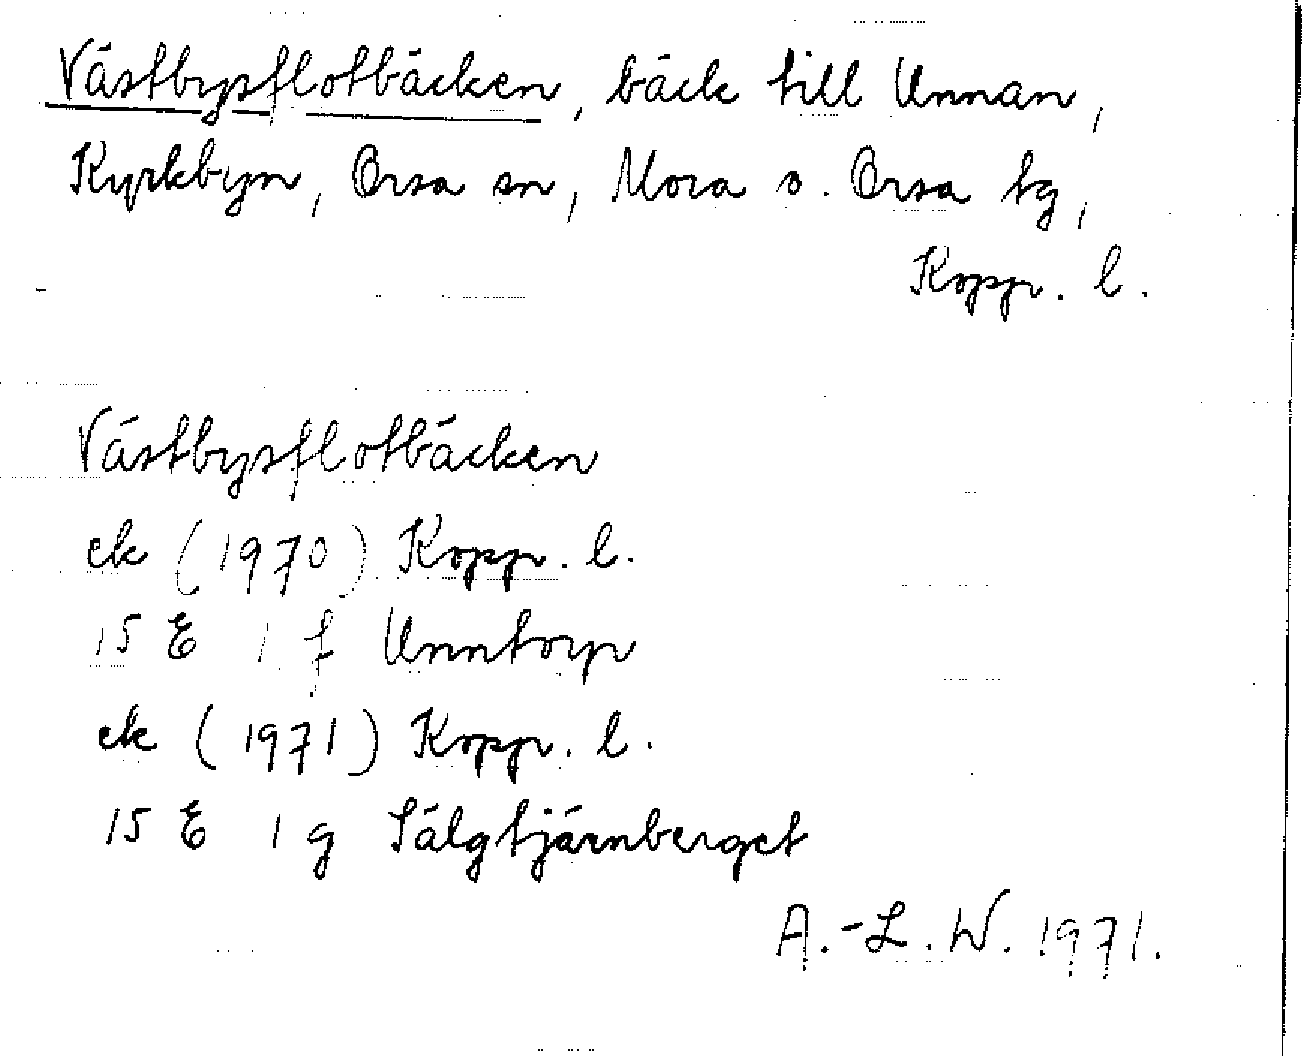 Västbysflotbäcken, bäck till Unnan,
Kyrkbyn, Orsa sn, Mora o. Orsa tg,
Kopp. l.
Västbysflotbäcken
ek (1970) Kopp. l.
15 E 1 f Unntorp
ek (1971) Kopp. l.
15 E 1 g Sälgtjärnberget
A.-L. W. 1971.